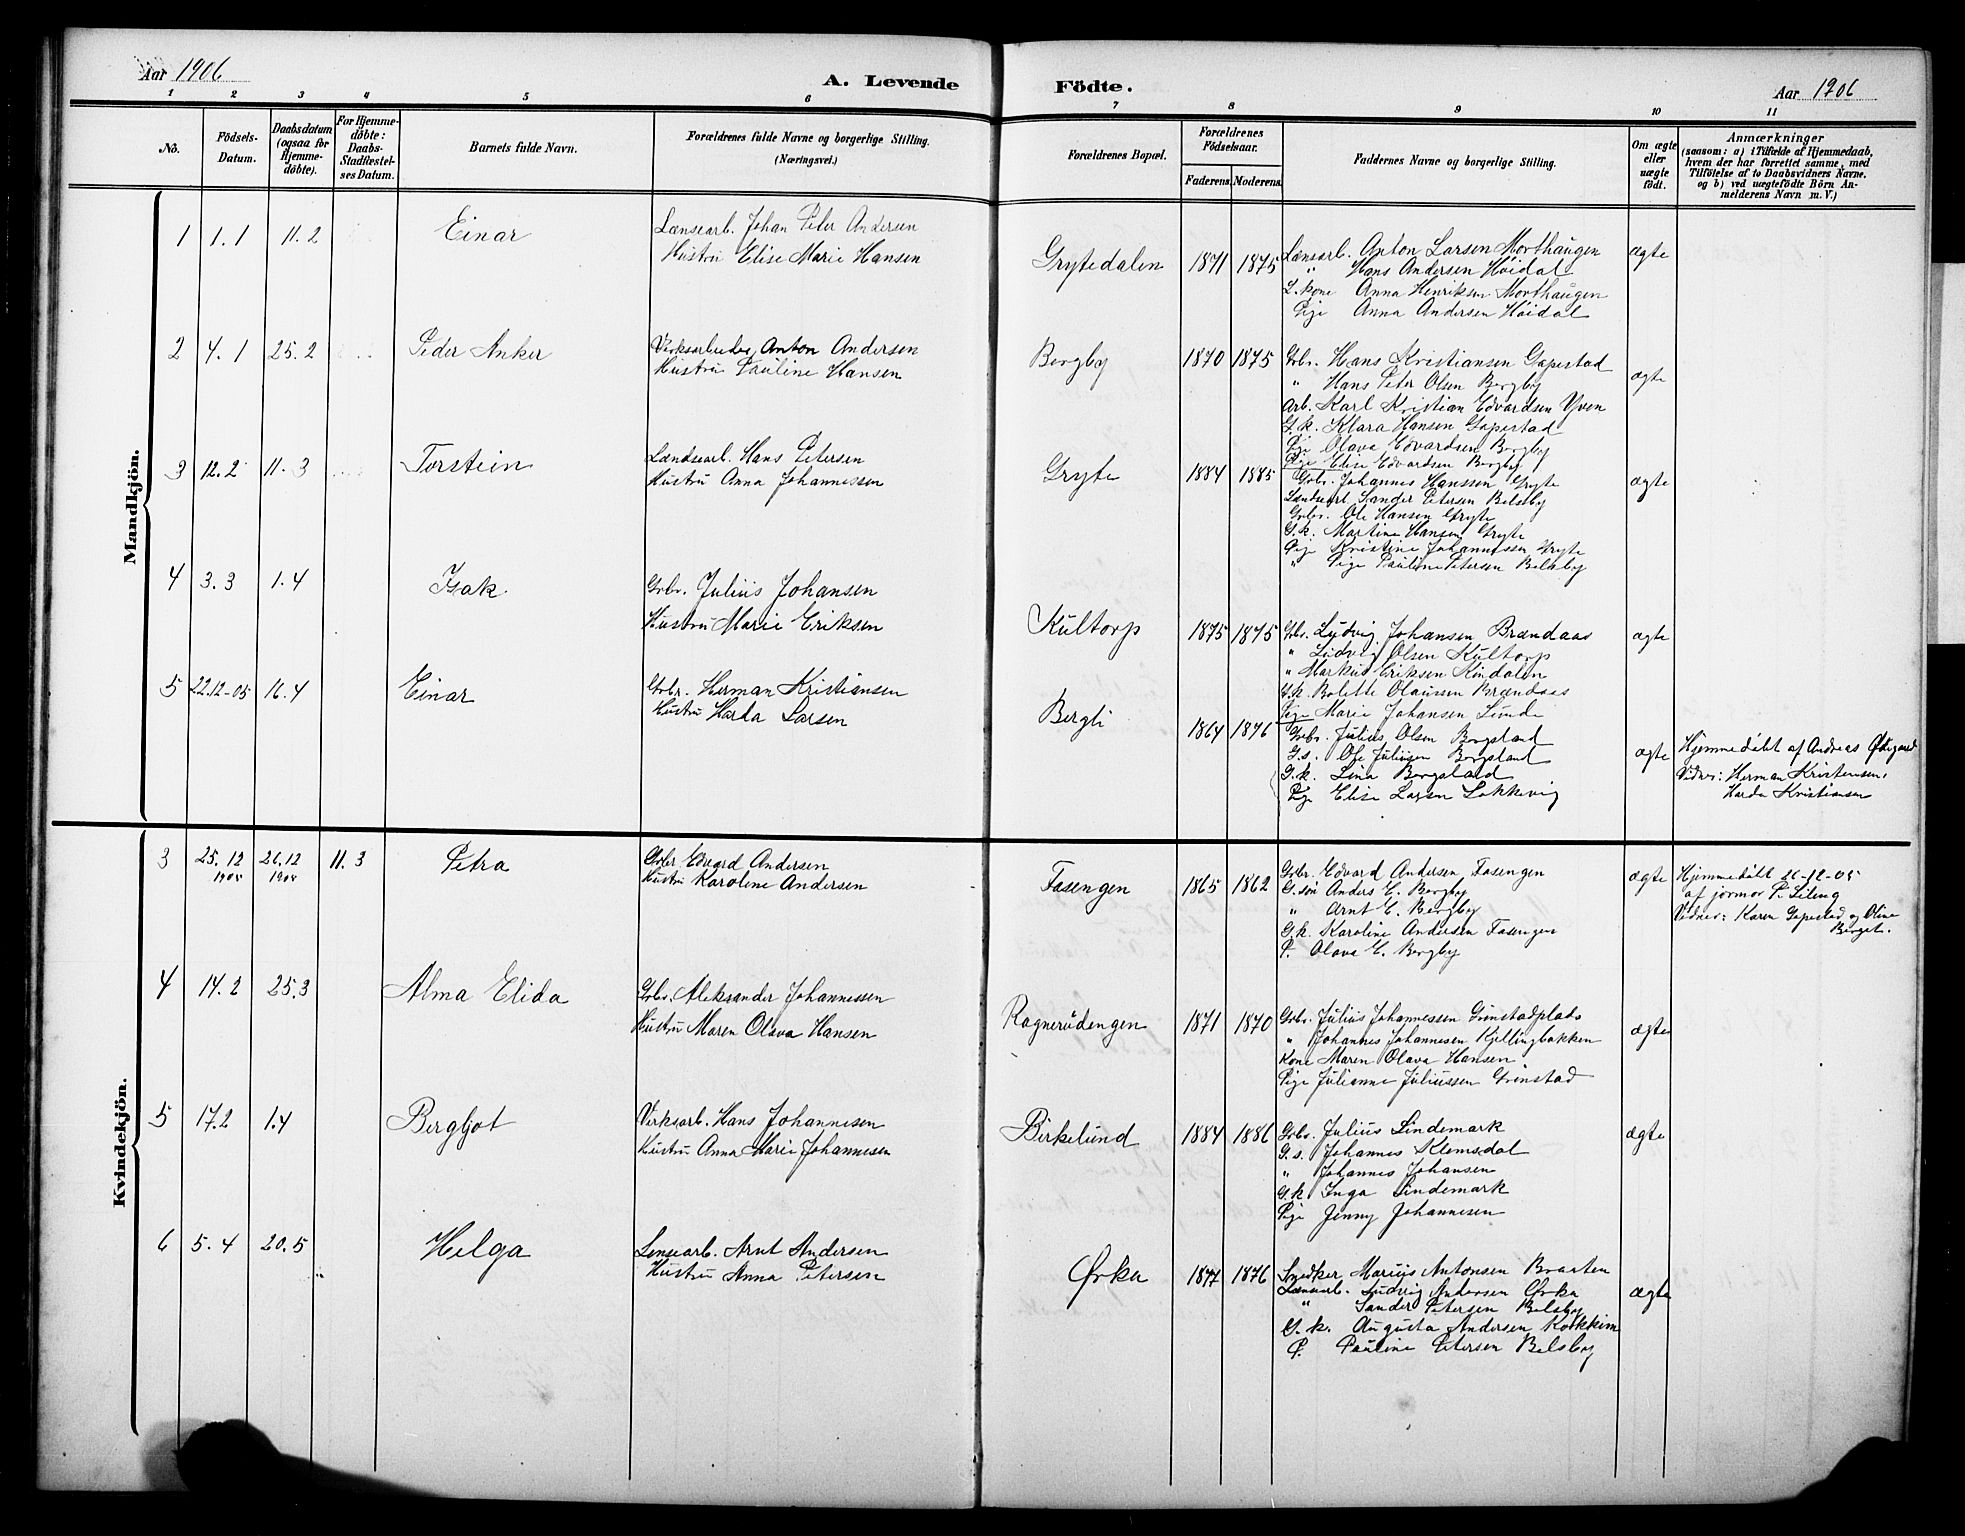 Aar 1906
A. Levende
Födte.
Aar 1906
1 2 3 4 5 6 7 8 9 10 11
Nô.
Födsels-
Datum.
Daabsdatum
(ogsaa for
Hjemme-
döbte).
For Hjemme-
döbte:
Daabs-
Stadfæstel-
ses Datum.
Barnets fulde Navn.
Forældrenes fulde Navne og borgerlige Stilling.
(Næringsvei.)
Forældrenes Bopæl.
Forældrenes
Födselsaar.
Faderens. Moderens.
Faddernes Navne og borgerlige Stilling.
Om ægte
eller
uægte
födt.
Anmærkninger
(saasom: a) i Tilfælde af Hjemmedaab,
hvem der har forrettet samme, med
Tilföielse af to Daabsvidners Navne,
og b) ved uægtefödte Börn An-
melderens Navn m. V.)
Mandkjön.
1 1.1 11.2 Einar
Lænsearb. Johan Peter Andersen
Hustru Elise Marie Hansen
Grytedalen 1871 1875
Lænsearb. Anton Larsen Morthaugen
" Hans Andersen Höidal
G. kone Anna Henriksen Morthaugen
Pige Anna Andersen Höidal
ægte
2 4.1 25.2 Peder Anker
Virksarbeider Anton Andersen
Hustru Pauline Hansen
Bergby 1870 1875
Grbr. Hans Kristiansen Gapestad
" Hans Peter Olsen Bergby
Arb. Karl Kristian Edvardsen Yven
G.k. Klara Hansen Gapestad
Pige Olava Edvardsen Bergby
Pige Elise Edvardsen Bergby
ægte
3 12.2 11.3 Torstein
Lændsearb. Hans Petersen
Hustru Anna Johannessen
Gryte 1884 1885
Grbr. Johannes Hanssen Gryte
Lændsearb. Sander Petersen Belsby
Grbr. Ole Hansen Gryte
G.k. Martine Hansen Gryte
Pige Kristine Johannessen Gryte
" Pige Pauline Petersen Belsby
ægte
4 3.3 1.4 Isak
Grbr. Julius Johansen
Hustru Marie Eriksen
Kultorp 1875 1875
Grbr. Ludvig Johansen Brændaas
" Ludvig Olsen Kultorp
" Markus Eriksen Kindalen
G.k. Bolette Olaussen Brændaas
Pige Marie Johansen Lunde
ægte
5 22.12-05 16.4 Einar
Grbr. Herman Kristiansen
Hustru Harda Larsen
Bergli 1864 1876
Grbr. Julius Olsen Borgsland
G.s. Ole Juliusen Borgsland
G.k. Lina Borgsland
Pige Elise Larsen Lökkevig
ægte
Hjemmedöbt af Andreas Ödegaard
Vidner: Herman Kristensen,
Harda Kristiansen
Kvindekjön.
3 25.12 1905 26.12 1905 11.3 Petra
Grbr Edvard Andersen
Hustru Karoline Andersen
Fasengen 1865 1862
Grbr. Edvard Andersen Fasengen
G. sön Anders E. Bergby
" Arnt E. Bergby
G.k. Karoline Andersen Fasengen
P. Olava E. Bergby
ægte
Hjemmedöbt 26-12-05
af jormor P. Liling
Vidner: Karen Gapestad og Olina
Berget.
4 14.2 25.3 Alma Elida
Grbr. Aleksander Johannessen
Hustru Maren Olava Hansen
Ragnerüdengen 1871 1870
Grbr. Julius Johannessen Grinstadplads
" Johannes Johannesen Kjellingbakken
Kone Maren Olava Hansen
Pige Julianne Juliussen Grinstad
ægte
5 17.2 1.4 Bergljot
Virksarb. Hans Johannesen
Hustru Anna Marie Johannesen
Birkelund 1884 1886
Grbr. Julius Lindemark
G.s. Johannes Klemsdal
" Johannes Johansen
G.k Inga Lindemark
Pige Jenny Johannesen
ægte
6 5.4 20.5 Helga
Lensearb. Arnt Andersen
Hustru Anna Petersen
Ørka 1877 1876
Snedker Marius Antonsen Braaten
Lænsearb. Ludvig Andersen Ørka
" Sander Petersen Belsby
G.k. Augusta Andersen Kokkim
P. Pauline Petersen Belsby
ægte